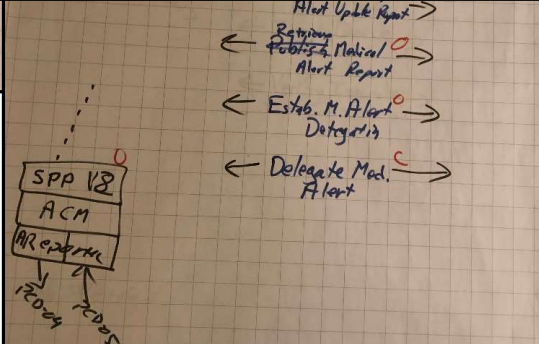 Alert Update Report
Retrieve
Publish Medical O
Alert Report
Estab. M. Alert O
Delegate Med. C
Alert
O
SPP V8
ACM
AReporter
PCD04
PCD05